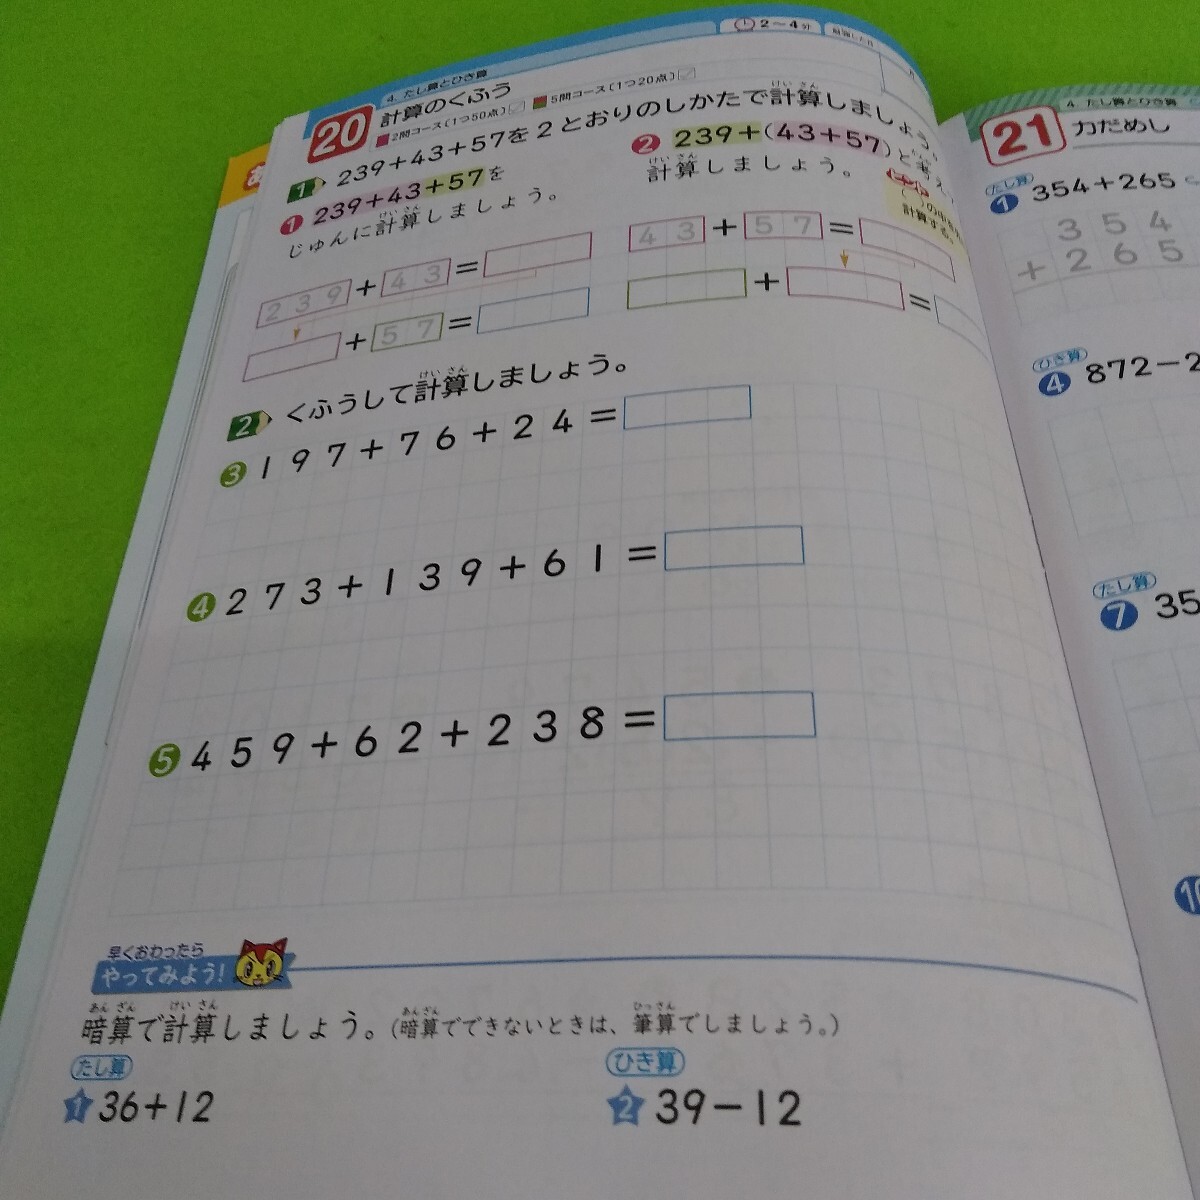 2〜4分
4. たし算とひき算
20 計算のくふう
2問コース(1つ50点) 5問コース(1つ20点)
1 239+43+57を2とおりのしかたで計算しましょう。
① 239+43+57を
じゅんに計算しましょう。
239+43=
+57=
② 239+(43+57)と考え
計算しましょう。
計算する。
43+57=
+ =
2 くふうして計算しましょう。
③ 197+76+24=
④ 273+139+61=
⑤ 459+62+238=
早くおわったら
やってみよう!
暗算で計算しましょう。(暗算でできないときは、筆算でしましょう。)
たし算
1 36+12
ひき算
2 39−12
4. たし算とひき算
21 力だめし
たし算
① 354+265
354
+265
ひき算
④ 872−2
たし算
⑦ 35
10